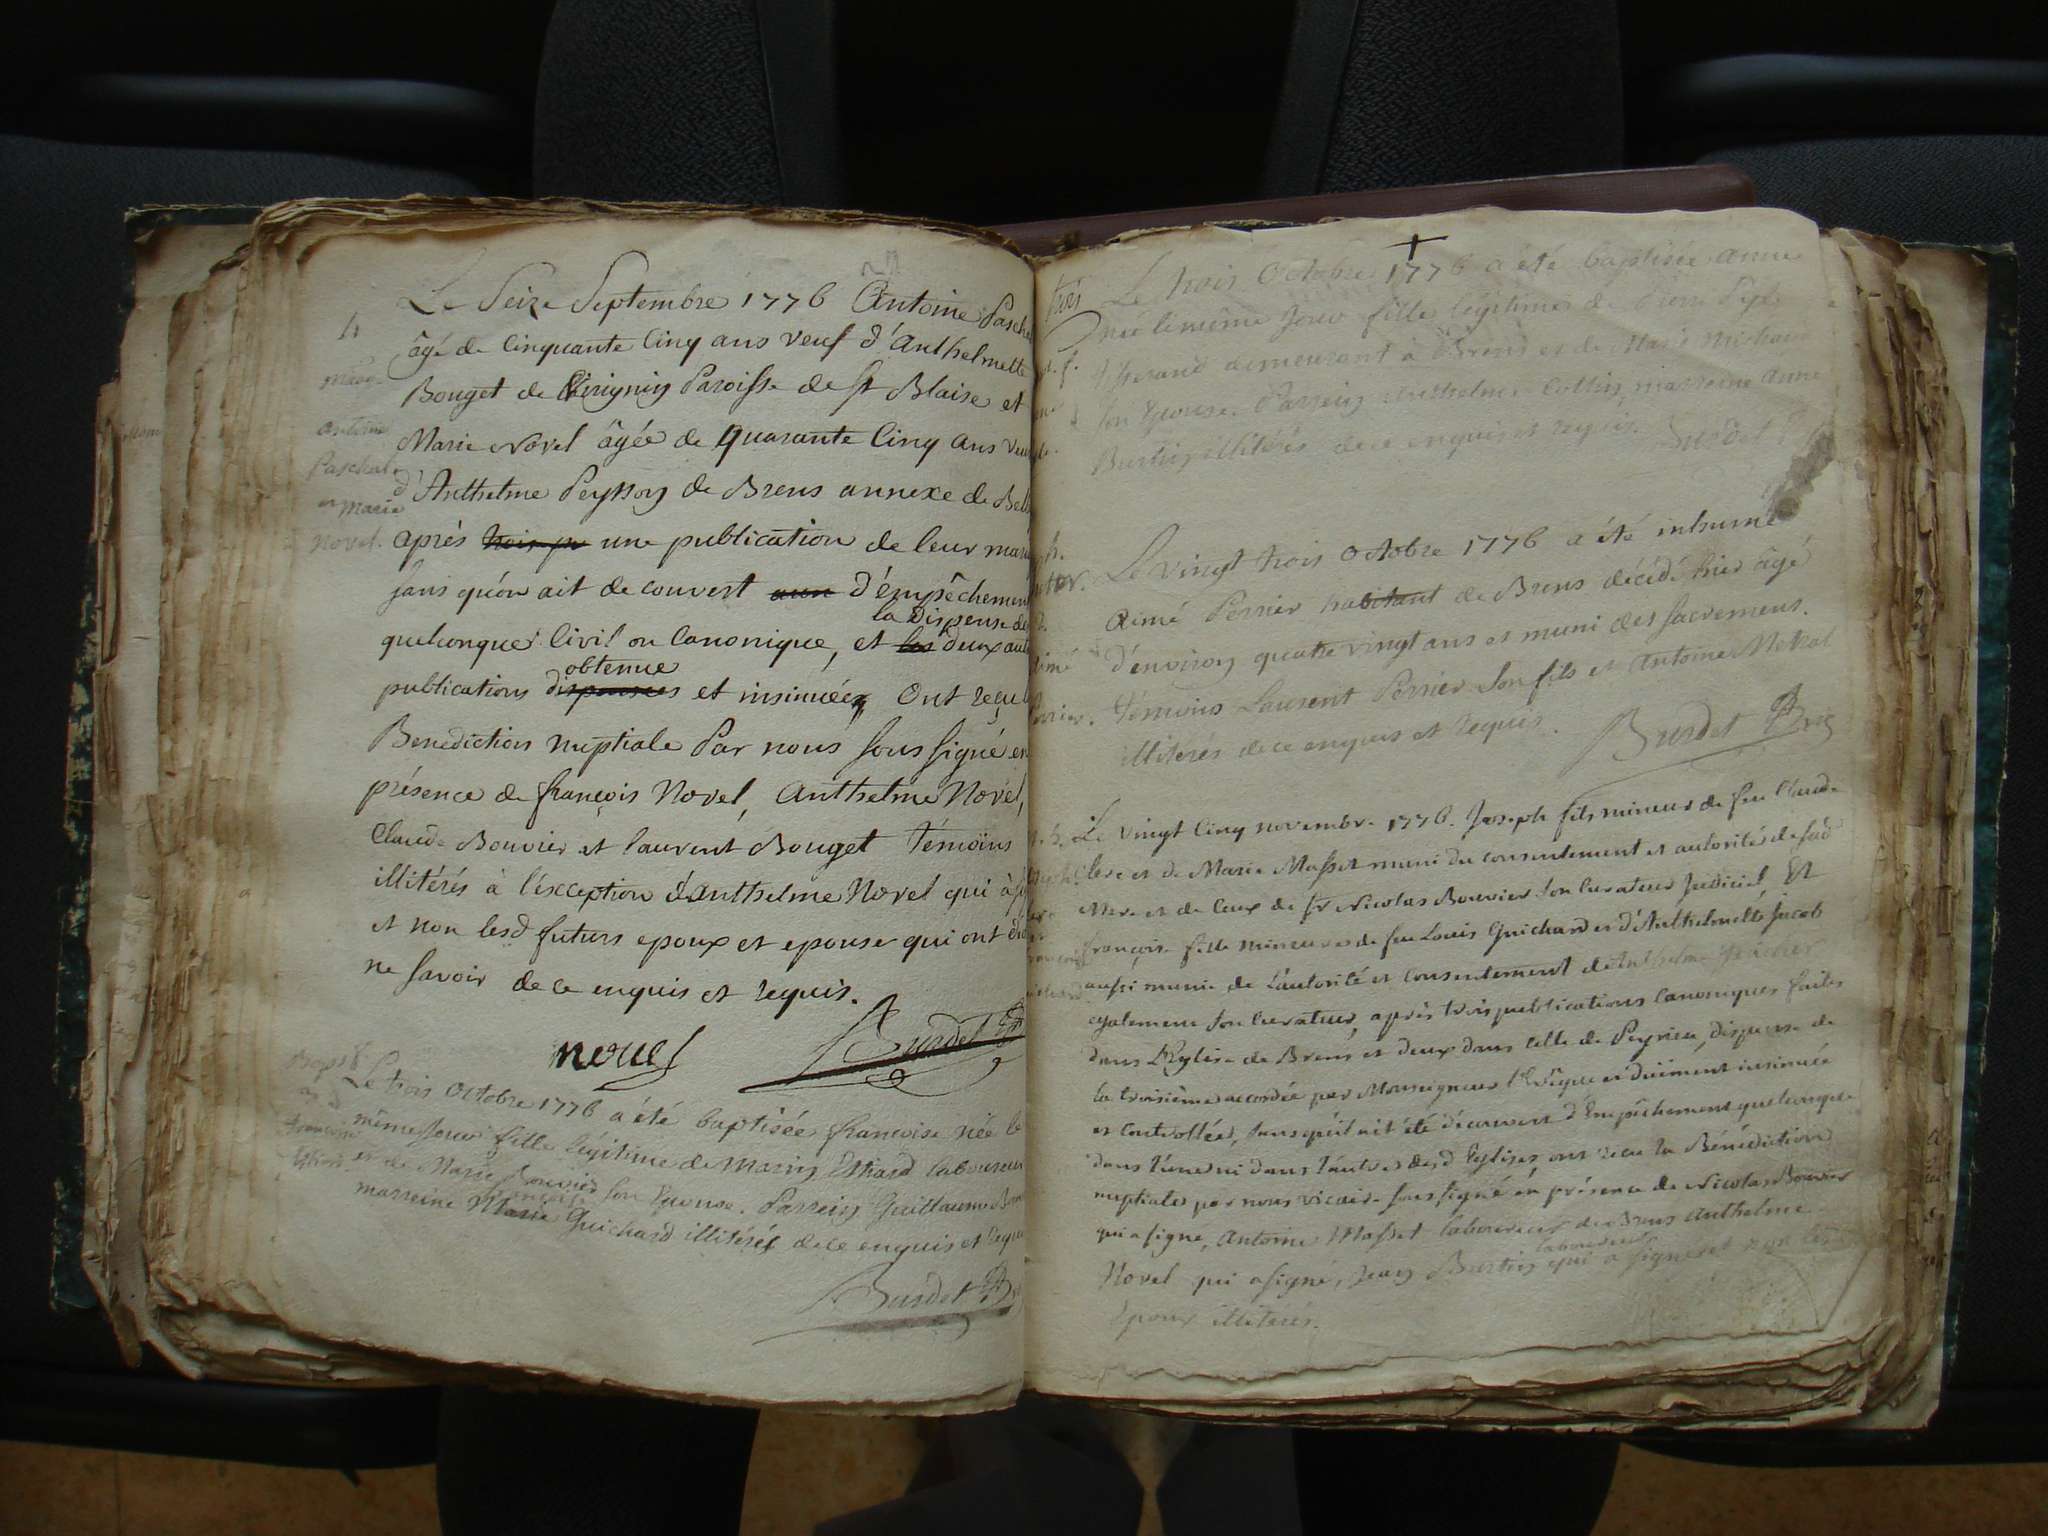 Le Seize Septembre 1776 Antoine Pascha
âgé de Cinquante Cinq ans veuf d'Anthelmette
Bouget de Paroisse de St Blaise et
Marie Novel âgée de Quarante Cinq ans veu
d'Anthelme Peysson de Brens annexe de Bell
après trois pu une publication de leur mari
sans qu'on ait decouvert aucun d'émpêchement
la Dispense de
quelconque Civil ou Canonique, et les deux aut
obtenue
publications dispenses et insinuée, Ont reçu l
Benediction nuptiale Par nous sous signé en
présence de françois Novel, Anthelme Novel,
Claude Bouvier et laurent Bouget témoins
illitérés à l'éxception d'anthelme Novel qui à si
et non lesd futurs epoux et epouse qui ont de
ne savoir de ce enquis et requis.
novel Burdet
h
Mari
Antoine
Paschal
et Marie
Novel.
Le trois Octobre 1776 a été baptisée françoise née le
même Jour fille légitime de Marin Ethard laboureur
et de Marie Bouvier son Epouse. Parrein Guillaume
françoise
marreine Marie Guichard illitérés de ce enquis et requ
Burdet
Bapt
françoise
Ethard
Le trois Octobre 1776 a été baptisée anne
née le même Jour fille légitime de
Tisserand demeurant à Brens et de Marie Michaud
son Epouse. Parrein Anthelme Collin, marreine Anne
Burtin illitérés de ce enquis et requis. Burdet
Le vingt trois Octobre 1776 a été inhumé
Aimé Perrier habitant de Brens décédé hier âgé
d'environ quatre vingt ans et muni des sacremens.
témoins Laurent Perrier son fils et Antoine
illiteres de ce enquis et requis. Burdet
aimé
Perrier.
Le vingt Cinq novembre 1776. Joseph fils mineur de feu Claude
Clerc et de Marie Masset muni du consentement et autorité de sad
Mere et de Ceux de Sr Nicolas Bouvier son Curateur Judiciel, Et
françoise fille mineure de feu Louis Guichard et d'Anthelmette Jacob
aussi munie de l'autorité et consentement d'Anthelme
egalement son curateur, après trois publications Canoniques faites
dans l'Eglise de Brens et deux dans Celle de Peyrieu, dispense de
la troisième accordée par Monseigneur l'Evêque et duëment insinuée
et Controllée, sans qu'il ait été découvert d'Empêchement quelconque
dans l'une ni dans l'autre desd Eglises, ont recu la Bénédiction
nuptiale par nous vicaire sous signé en présence de Nicolas Bouvier
qui a signé, Antoine Masset laboureur de Brens Anthelme
laboureur
Novel qui a signé, Jean Burtin qui a signé et non les
Epoux illitérés.